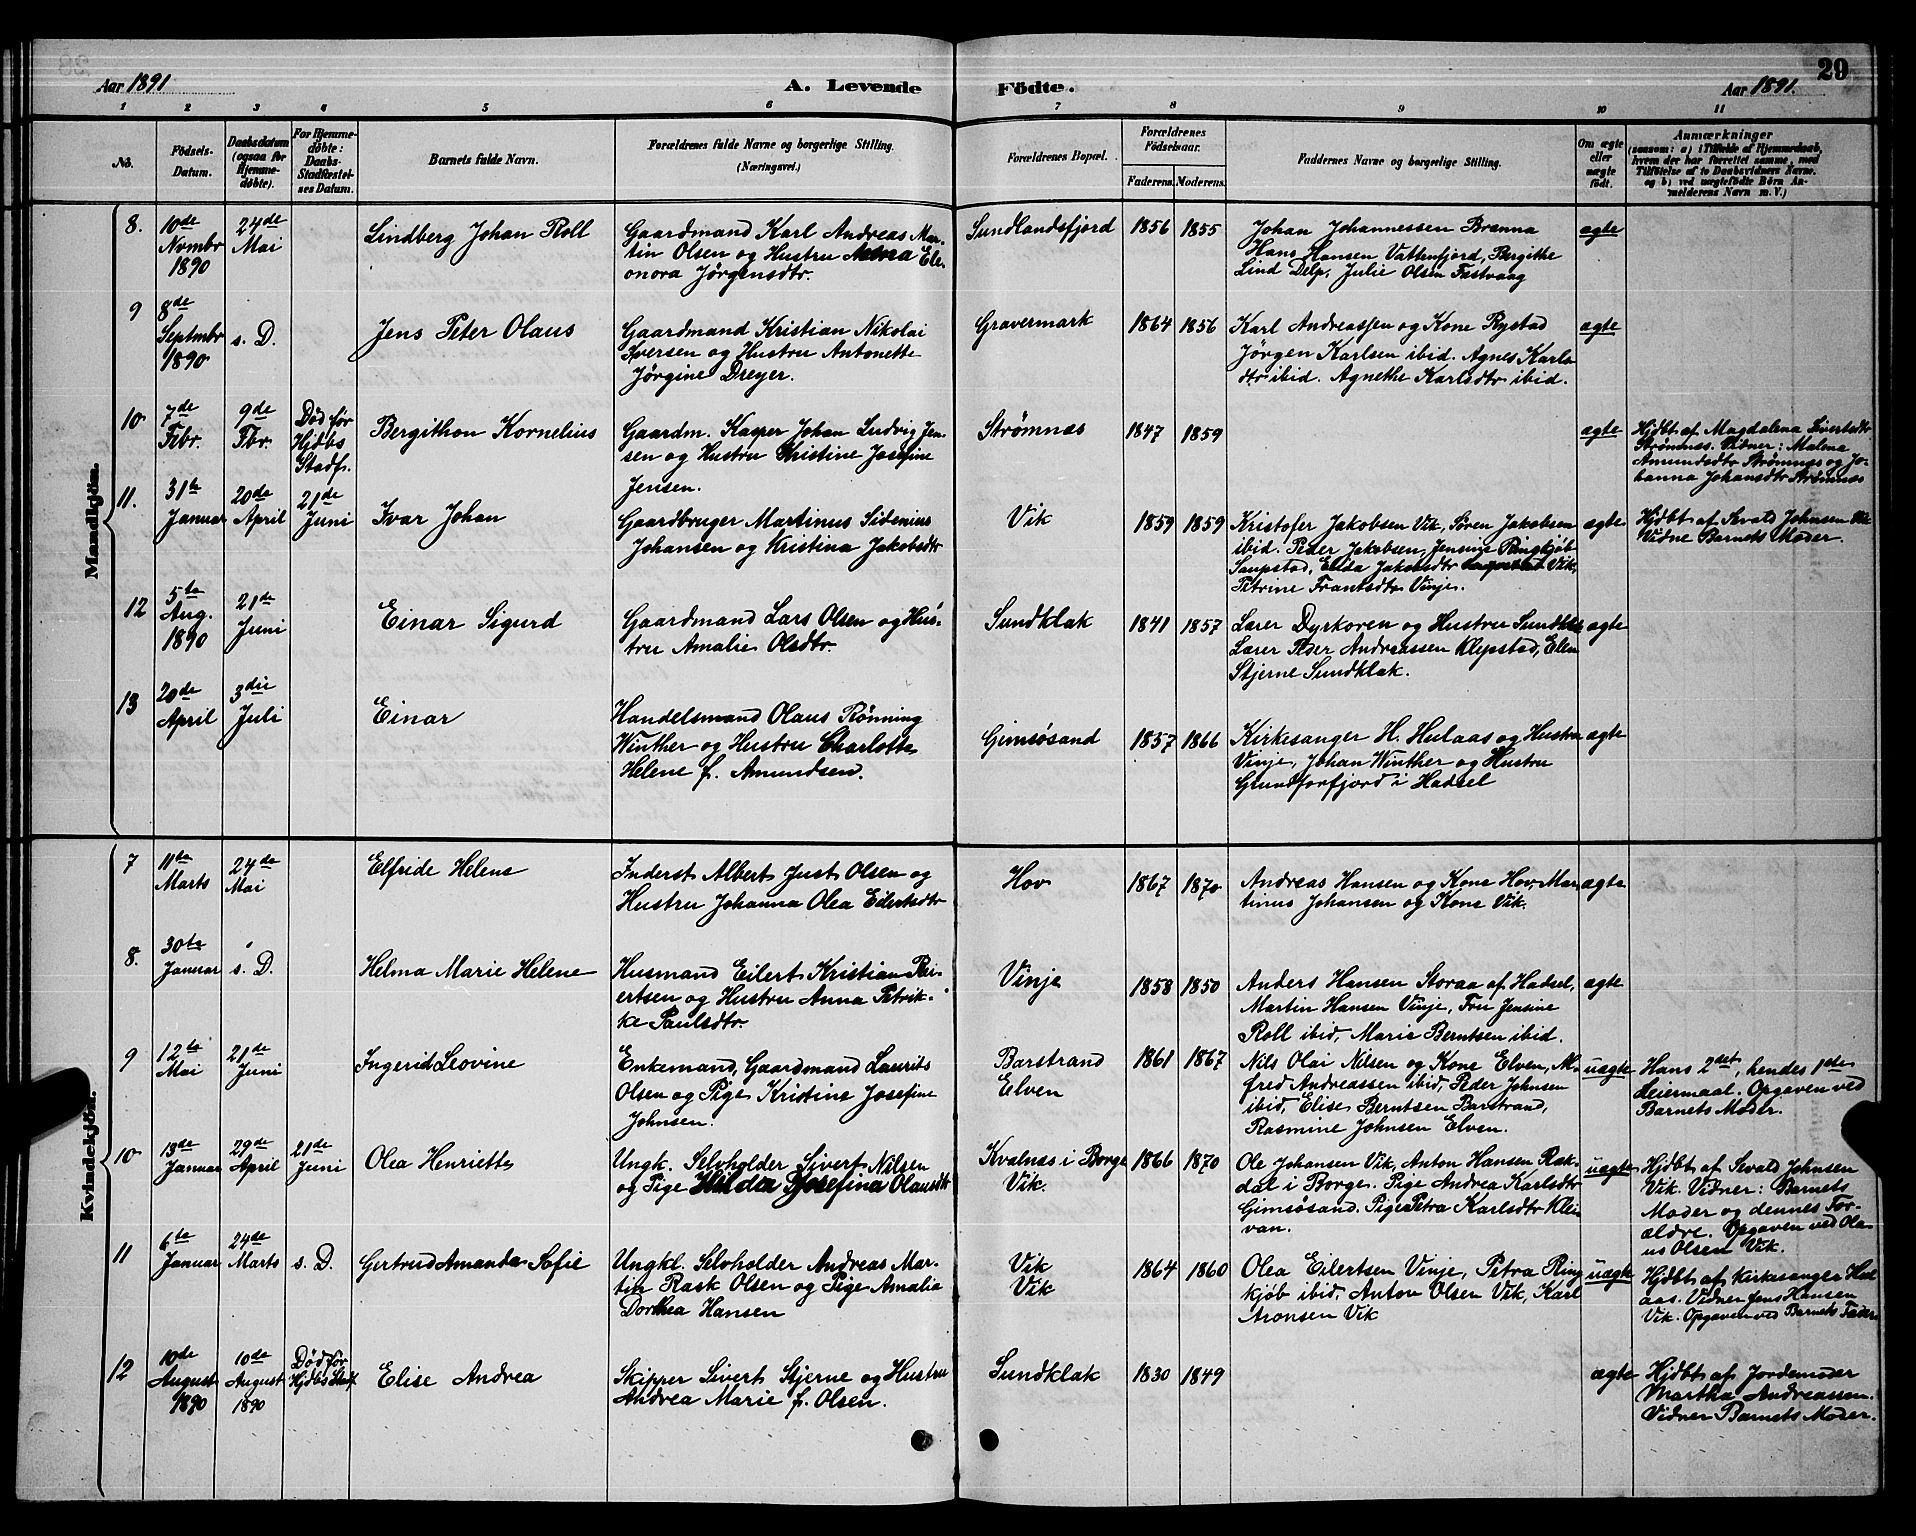 29
Aar 1891
A. Levende
Födte.
Aar 1891.
1 2 3 4 5 6 7 8 9 10 11
No.
Födsels-
Datum.
Daabsdatum
(ogsaa for
Hjemme-
døbte).
For Hjemme-
döbte:
Daabs-
Stadfæstel-
ses Datum.
Barnets fulde Navn.
Forældrenes fulde Navne og borgerlige Stilling.
(Næringsvei.)
Forældrenes Bopæl.
Forældrenes
Födselsaar.
Faderens. Moderens.
Faddernes Navne og borgerlige Stilling.
Om ægte
eller
uægte
født.
Anmærkninger
(saasom: a) i Tilfælde af Hjemmedaab,
hvem der har forrettet samme, med
Tilföielse af to Daabsvidners Navne,
og b) ved uægtefödte Börn An-
melderens Navn m. V.)
Mandkjön.
8.
10de
Nvmbr
1890
24de
Mai
Lindberg Johan Roll
Gaardmand Karl Andreas Mar-
tin Olsen og Hustru Anna Ele-
onora Jørgensdtr.
Sundlandsfjord
1856 1855
Johan Johannessen Brenna
Hans Hansen Vattenfjord, Bergithe
Lind Delp, Julie Olsen Fastvaag
ægte
9
8de
Septmbr
1890
s. D.
Jens Peter Olaus
Gaardmand Kristian Nikolai
Iversen og Hustru Antonette
Jørgine Dreyer.
Gravermark
1864 1856
Karl Andreassen og Kone Rystad
Jörgen Karlsen ibid. Agnes Karls
dtr ibid. Agnethe Karlsdtr ibid.
ægte
10
7de
Febr.
9de
Fbr.
Död før
Hjdbs
Stadf.
Bergithon Kornelius
Gaardm. Kasper Johan Ludvig Jen-
sen og Hustru Kristine Josefine
Jensen.
Strømnæs
1847 1859
ægte
Hjdbt af Magdalena Sivertsdtr
Strømnæs. Vidner: Malena
Amundsdtr Strømnæs og Jo-
hanna Johansdtr Strømnæs
11.
31te
Januar
20de
April
21de
Juni
Ivar Johan
Gaardbruger Martinus Sidenius
Johansen og Kristina Jakobsdtr
Vik
1859 1859
Kristofer Jakobsen Vik, Søren Jakobsen
ibid. Peder Jakobsen, Jensine Ringkjøb
Saupstad, Elida Jakobsdtr Vik,
Petrine Frantsdtr Vinje.
ægte
Hjdbt af Sevald Johnsen Vik
Vidne Barnets Moder.
12
5te
Aug.
1890
21de
Juni
Einar Sigurd
Gaardmand Lars Olsen og Hus-
tru Amalie Olsdtr.
Sundklak
1841 1857
Lærer Dyrkoren og Hustru Sundklak
Lærer Peder Andreassen Klepstad, Elen
Stjerne Sundklak.
ægte
13
20de
April
3die
Juli
Einar
Handelsmand Olaus Rønning
Winther og Hustru Charlotte
Helene f. Amundsen.
Gimsøsand
1857 1866
Kirkesanger H. Hulaas og Hustru
Vinje, Johan Winther og Hustru
Grundforfjord i Hadsel
ægte
Kvindekjön.
7
11te
Marts
24de
Mai
Elfride Helene
Inderst Albert Just Olsen og
Hustru Johanna Olea Eilertsdtr
Hov
1867 1870
Andreas Hansen og Kone Hov, Mar
tinus Johansen og Kone Vik.
ægte
8.
30te
Januar
s. D.
Helma Marie Helene
Husmand Eilert Kristian Rei-
ertsen og Hustru Anna Petrik-
ke Paulsdtr.
Vinje
1858 1850
Anders Hansen Storaa af Hadsel,
Martin Hansen Vinje, Fru Jensine
Roll ibid, Marie Berntsen ibid.
ægte
9
12te
Mai
21de
Juni
Ingerid Leovine
Enkemand, Gaardmand Laurits
Olsen og Pige Kristine Josefine
Johnsen.
Barstrand
Elven
1861 1867
Nils Olai Nilsen og Kone Elven, Al-
fred Andreassen ibid, Peder Johnsen
ibid, Elise Berntsen Barstrand,
Rasmine Johnsen Elven.
uægte
Hans 2det, hendes 1ste
Leiermaal. Opgaven ved
Barnets Moder.
10
13de
Januar
29de
April
21de
Juni
Olea Henriette
Ungk. Selvholder Sivert Nilsen
og Pige Hilda Josefina Olausdtr
Kvalnæs i Borge
Vik.
1866 1870
Ole Johansen Vik, Anton Hansen Rak-
dal i Borge. Pige Andrea Karlsdtr
Gimsøsand. Pige Petra Karlsdtr Klei
van.
uægte
Hjdbt af Sevald Johnsen
Vik. Vidner: Barnets
Moder og dennes For-
ældre. Opgaven ved Ola-
us Olsen Vik.
11
6te
Januar
24de
Marts
s. D.
Gertrud Amanda Sofie
Ungkl. Selvholder Andreas Mar-
tin Rask Olsen og Pige Amalia
Dorthea Hansen
Vik
Vik
1864 1860
Olea Eilertsen Vinje, Petra Ring
kjøb ibid, Anton Olsen Vik, Karl
Aronsen Vik
uægte
Hjdbt af Kirkesanger Hul
aas. Vidner Jens Hansen
Vik. Opgaven ved Barnets Fader
12
10de
August
1890
10de
August
1890
Död før
Hjdbs Stadf
Elise Andrea
Skipper Sivert Stjerne og Hustru
Andrea Marie f. Olsen.
Sundklak
1830 1849
ægte
Hjdbt af Jordemoder
Martha Andreassen.
Vidner Barnets Moder.